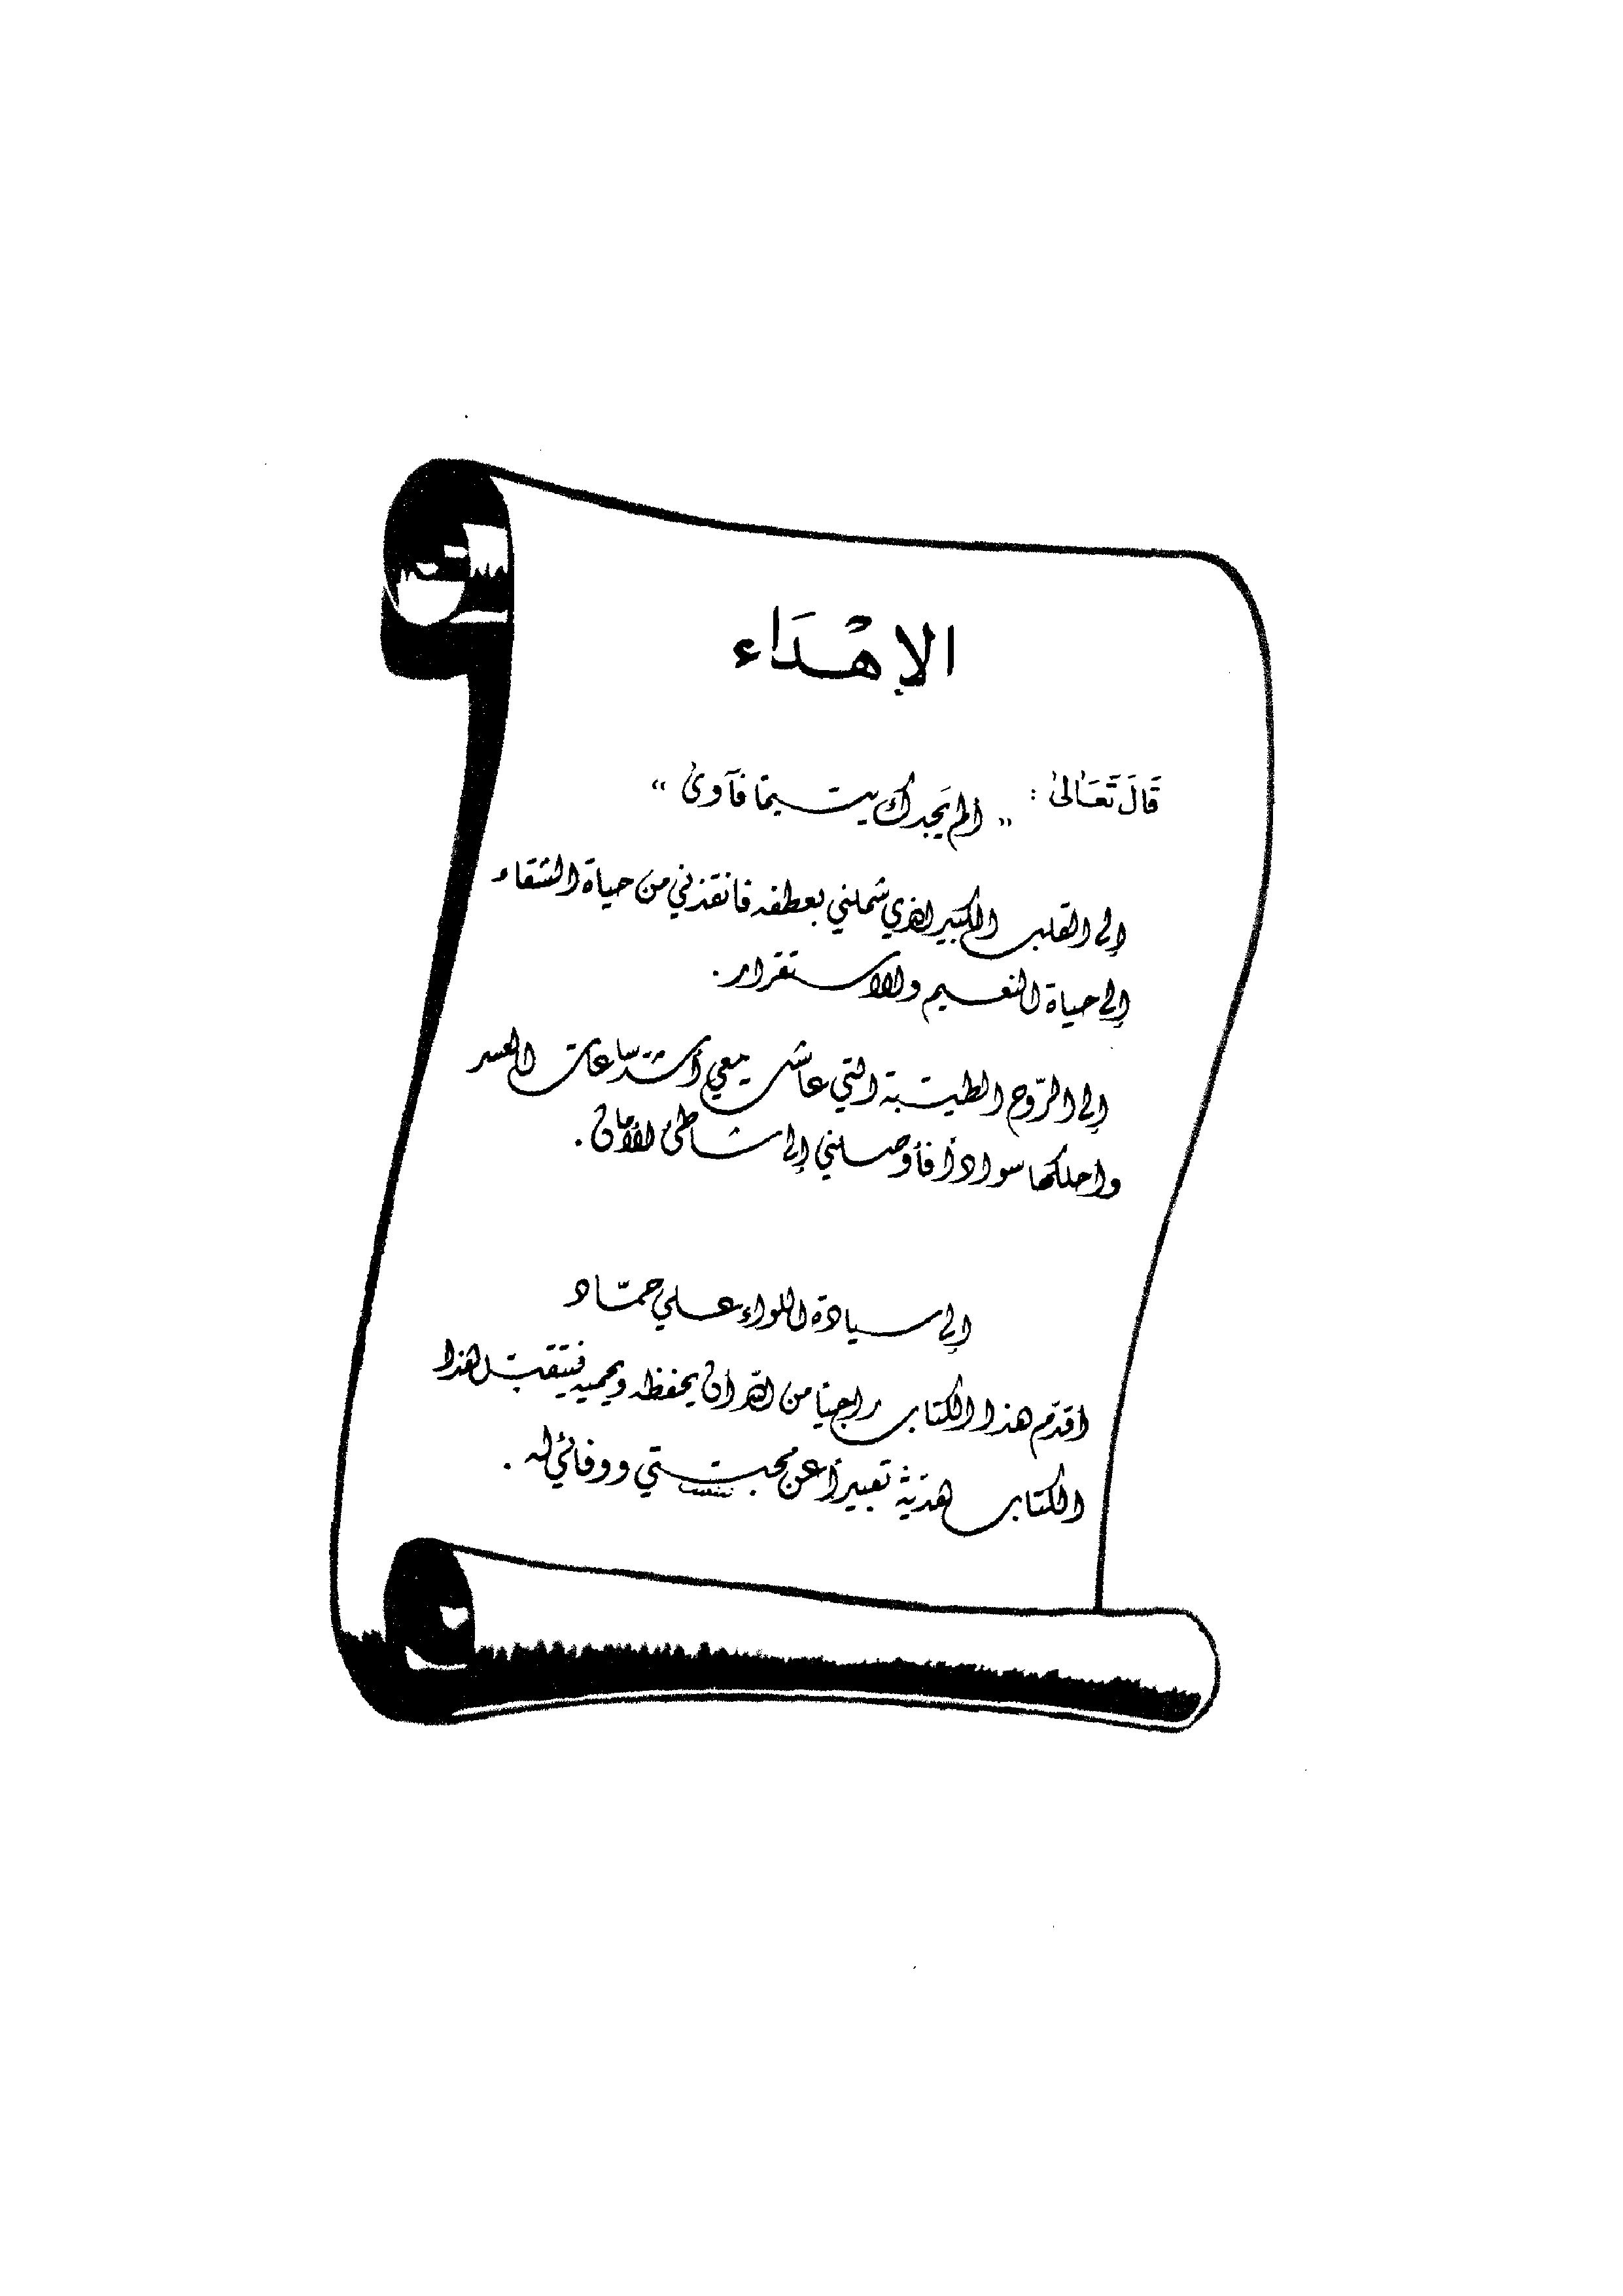 الإهْدَاء
قَالَ تَعَالىٰ : " ألم يَجدك يتيمًا فآوىٰ "
إلى القلب الكبير الذي شملني بعطفه فانقذني من حياة الشقاء
إلى حياة النعيم والاستقرار .
إلى الرّوح الطيبة التي عاشت معي أشدّ ساعات العسر
واحلكها سواداً فأوصلني إلى شاطئ الأمان .
إلى سيادة اللواء علي حمّاد
اقدّم هذا الكتاب راجيًا من الله أن يحفظه ويحميه فيتقبّل هذا
الكتاب هديّة تعبيراً عن محبتي ووفائي له .